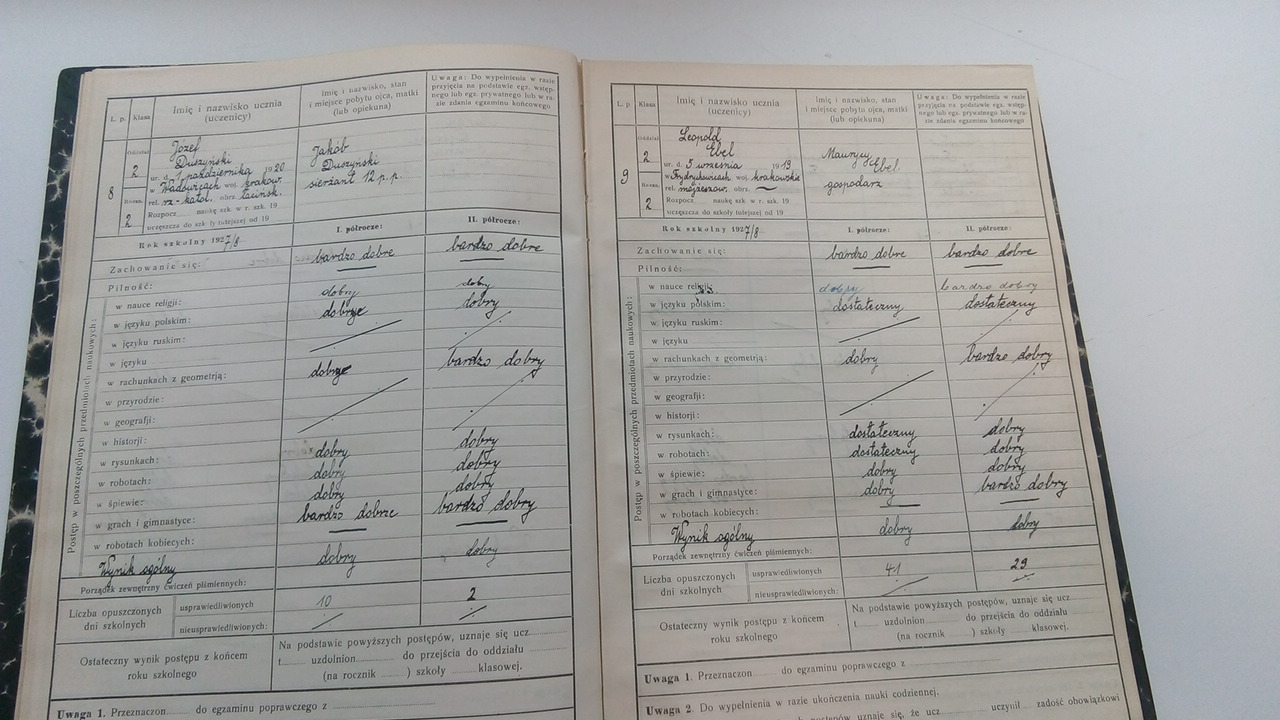 L. p.
Klasa
Imię i nazwisko ucznia
(uczenicy)
Imię i nazwisko, stan
i miejsce pobytu ojca, matki
(lub opiekuna)
Uwaga: Do wypełnienia w razie
przyjęcia na podstawie egz. wstęp-
nego lub egz. prywatnego lub w ra-
zie zdania egzaminu końcowego
8
Oddział
2
Roczn.
2
Józef
Duszyński
ur. d. 7 października 1920
w Wadowicach woj. krakow.
rel. rz-katol. obrz. łacińsk.
Rozpocz naukę szk. w r. szk. 19
uczęszcza do szk ły tutejszej od 19
Jakób
Duszyński
sierżant 12 p. p.
Rok szkolny 1927/8
I. półrocze:
II. półrocze:
Zachowanie się: bardzo dobre bardzo dobre
Pilność:
Postęp w poszczególnych przedmiotach naukowych:
w nauce religji: dobry dobry
w języku polskim: dobrze dobry
w języku ruskim:
w języku
w rachunkach z geometrją: dobrze bardzo dobry
w przyrodzie:
w geografji:
w historji:
w rysunkach: dobry dobry
w robotach: dobry dobry
w śpiewie: dobry dobry
w grach i gimnastyce: bardzo dobrze bardzo dobry
w robotach kobiecych:
Wynik ogólny dobry dobry
Porządek zewnętrzny ćwiczeń piśmiennych:
Liczba opuszczonych
dni szkolnych
usprawiedliwionych 10 2
nieusprawiedliwionych:
Ostateczny wynik postępu z końcem
roku szkolnego
Na podstawie powyższych postępów, uznaje się ucz
t uzdolnion do przejścia do oddziału
(na rocznik ) szkoły klasowej.
Uwaga 1. Przeznaczon do egzaminu poprawczego z
L. p.
Klasa
Imię i nazwisko ucznia
(uczenicy)
Imię i nazwisko, stan
i miejsce pobytu ojca, matki
(lub opiekuna)
Uwaga: Do wypełnienia w razie
przyjęcia na podstawie egz. wstęp-
nego lub egz. prywatnego lub w ra-
zie zdania egzaminu końcowego
9
Oddział
2
Roczn.
2
Leopold
Ebel
ur. d. 5 września 1919
w Frydrychowicach woj. krakowskie
rel. mojżeszow. obrz.
Rozpocz naukę szk. w r. szk. 19
uczęszcza do szkoły tutejszej od 19
Maurycy
Ebel.
gospodarz
Rok szkolny 1927/8
I. półrocze:
II. półrocze:
Zachowanie się: bardzo dobre bardzo dobre
Pilność:
Postęp w poszczególnych przedmiotach naukowych:
w nauce religji: dobry bardzo dobry
w języku polskim: dostateczny dostateczny
w języku ruskim:
w języku
w rachunkach z geometrją: dobry bardzo dobry
w przyrodzie:
w geografji:
w historji:
w rysunkach: dostateczny dobry
w robotach: dostateczny dobry
w śpiewie: dobry dobry
w grach i gimnastyce: dobry bardzo dobry
w robotach kobiecych:
Wynik ogólny dobry dobry
Porządek zewnętrzny ćwiczeń piśmiennych:
Liczba opuszczonych
dni szkolnych
usprawiedliwionych 41 29
nieusprawiedliwionych:
Ostateczny wynik postępu z końcem
roku szkolnego
Na podstawie powyższych postępów, uznaje się ucz
t uzdolnion do przejścia do oddziału
(na rocznik ) szkoły klasowej.
Uwaga 1. Przeznaczon do egzaminu poprawczego z
Uwaga 2. Do wypełnienia w razie ukończenia nauki codziennej.
postępów, uznaje się, że ucz uczynił zadość obowiązkowi